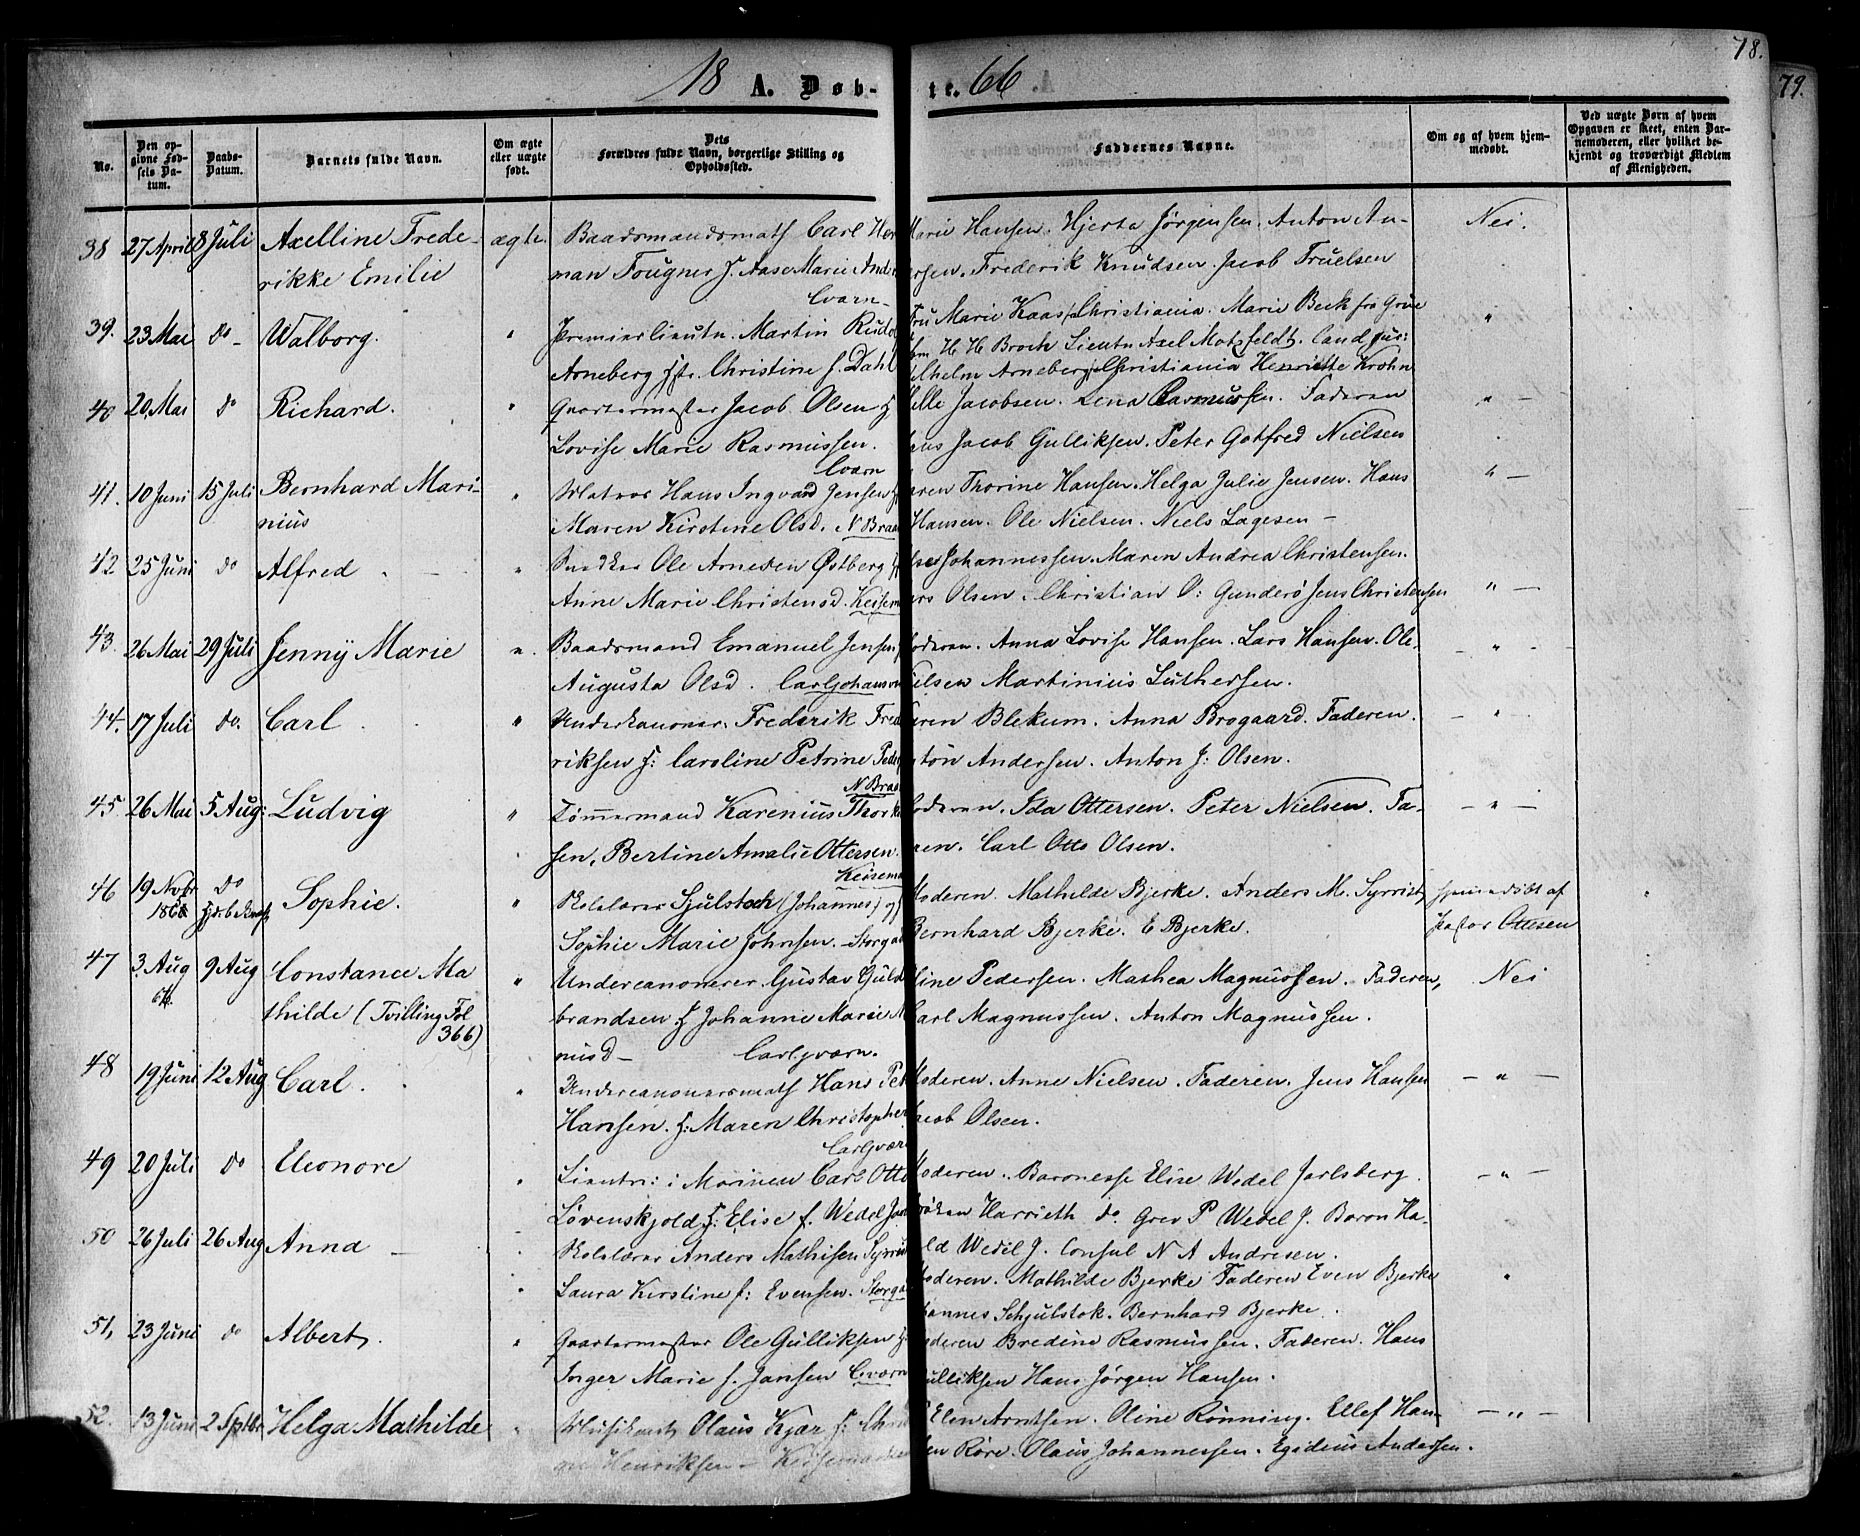 78.
79.
18 A. Døb-
te. 66
No.
Den op-
givne Fød-
sels Da-
tum.
Daabs-
Datum.
Barnets fulde Navn.
Om ægte
eller uægte
født.
Dets
Forældres fulde Navn, borgerlige Stilling og
Opholdssted.
Faddernes Navne.
Om og af hvem hjem-
medøbt.
Ved uægte Børn af hvem
Opgaven er skeet, enten Bar-
nemoderen, eller hvilket be-
kjendt og troværdigt Medlem
af Menigheden.
38 27 April 8 Juli Axelline Frede- ægte Baadsmandsmath Carl Her Marie Hansen. Hjerta Jørgensen. Anton An- Nei.
rikke Emilie man Tougner f. Aase Marie Ander ersen. Frederik Knudsen. Jacob Truelsen
Cværn-
39. 23 Mai do - Walborg. " Premierlieutn. Martin Rudol Fru Marie Kaas Christiania. Marie Beck fra Grue "
H H Broch Lieutn Axel Motzfeldt. Cand jur:
Arneberg Christine f. Dahl ilhelm Arneberg Christiania Henriette Krohn
40 20 Mai do Richard. " Qvartermester Jacob Olsen Jacobsen. Lena Rasmussen. Faderen "
Lovise Marie Rasmussen. ens Jacob Gulliksen. Peter Gotfred Nielsen
Cværn
41. 10 Juni 15 Juli Bernhard Mari- " Matros Hans Ingvard Jensen aren Thorine Hansen. Helga Julie Jensen. Hans " -
nius Maren Kirstine Olsd. N Braa Hansen. Ole Nielsen. Niels Lagesen -
42 25 Juni do Alfred " Snedker Ole Arnesen Østberg Johannessen. Maren Andrea Christensen.
Anne Marie Christensd. Keisem ars Olsen. Christian O: Gunderø Jens Christensen " -
43. 26 Mai 29 Juli Jenny Marie " Baadsmand Emanuel Jensen oderen. Anna Lovise Hansen. Lars Hansen. Ole - " -
Augusta Olsd. Carljohansv ielsen Martinius Luthersen.
44. 17 Juli do. Carl. " Underkanoner. Frederik Fred aren Blekum. Anna Brogaard. Faderen. - "
riksen f: Caroline Petrine Peder nton Andersen. Anton J: Olsen.
N Braa
45. 26 Mai 5 Aug: Ludvig " Tømmermand Karenius Thork oderen. Ida Ottersen. Peter Nielsen. Fa- - " -
sen, Bertine Amalie Ottersen. ren. Carl Otto Olsen.
Keisema
46 19 Novbr do Sophie. " Skolelærer Sjulstock (Johannes) og Moderen. Mathilde Bjerke. Anders M. Syrrist, hjemmedøbt af
1865
Sophie Marie Johnsen. Storga Bernhard Bjerke. E Bjerke. Pastor Ottesen
47 3 Aug 9 Aug Constance Ma " Undercanonerer Gustav Guld line Pedersen. Mathea Magnussen. Faderen, Nei
66. thilde (Tvilling Fol brandsen Johanne Marie Carl Magnussen. Anton Magnussen.
366)
nusd - Carljværn.
48 19 Juni 12 Aug Carl. " Undercanonersmath Hans Pet Moderen. Anne Nielsen. Faderen. Jens Hansen - " -
Hansen. f: Maren Christopher acob Olsen.
Carljvær
49 20 Juli do Eleonore " Lieutn: i Marinen Carl Otto Moderen. Baronesse Elise Wedel Jarlsberg. - " -
Løvenskjold f: Elise f. Wedel Jar røken Harrieth do. Grev P Wedel J. Baron Ha-
50 26 Juli 26 Aug Anna - Skolelærer Anders Mathisen Syrri ld Wedel J. Consul N A Andresen.
Laura Kirstine f: Evensen. Storga Moderen. Mathilde Bjerke Faderen Even Bjerke "
ohannes Schjulstok. Bernhard Bjerke.
51, 23 Juni do Albert. " Qvartermester Ole Gulliksen oderen Bredine Rasmussen. Faderen. Hans
Inger Marie f. Jansen Cværn ulliksen Hans Jørgen Hansen.
52. 13 Juni 2 Septbr Helga Mathilde " Musikant Olaus Kjær f: Elen Arntsen. Oline Rønning. Ellef Han- - " -
Henriksen - Keisemarken sen Røre. Olaus Johannessen. Egidius Andersen.